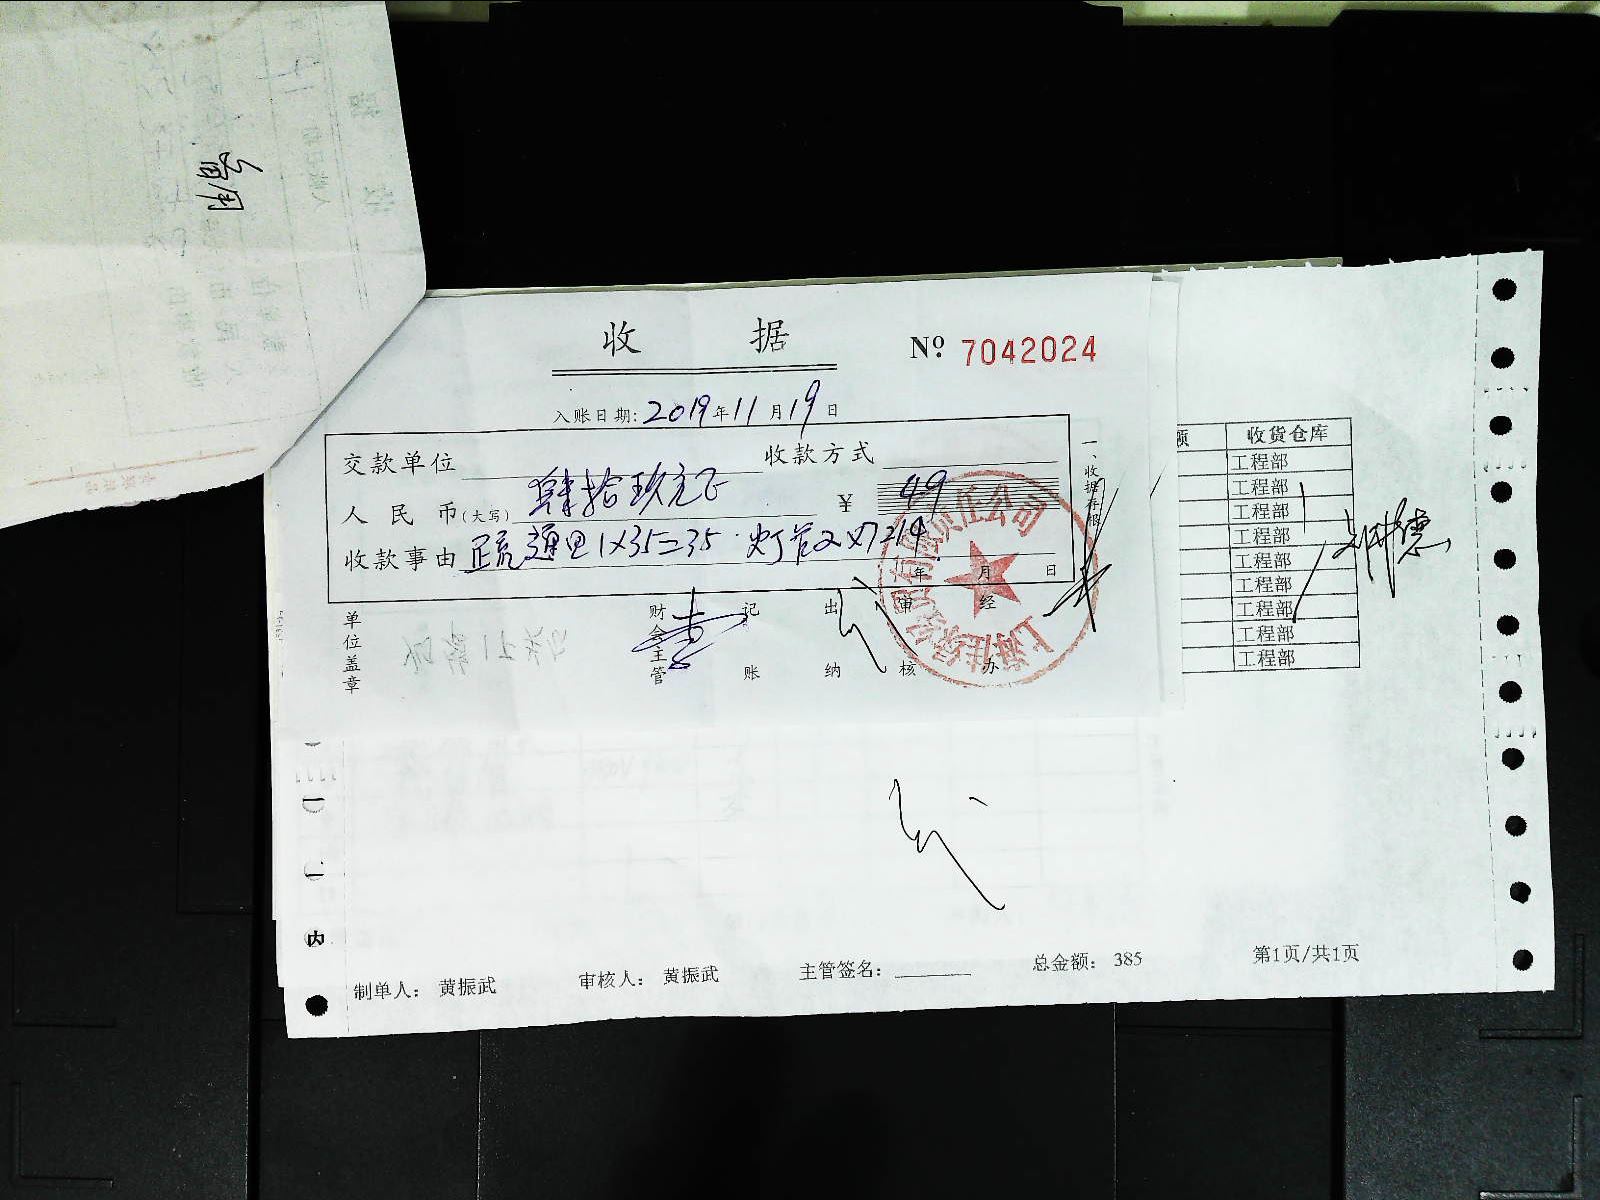 备用
收 据
No. 7042024
入账日期: 2019年11月19日
交款单位 收款方式
人民币(大写) 肆拾玖元正 ¥ 49
收款事由 疏通四1×35=35.灯管2×7=14
年 月 日
一、收据存根
单位盖章 财会主管 记账 出纳 审核 经办
额 收货仓库
工程部
工程部
工程部
工程部
工程部
工程部
工程部
工程部
工程部
内
制单人: 黄振武 审核人: 黄振武 主管签名: 总金额: 385 第1页/共1页